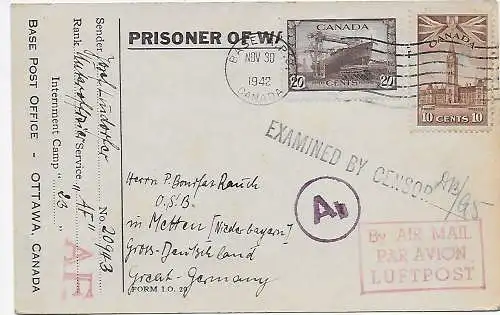 PRISONER OF WA
BASE P.O.
NOV 30
1942
CANADA
CANADA
20 CENTS 20
CANADA
10 CENTS 10
EXAMINED BY CENSOR
Herrn P. Bonifaz Rauch
O.S.B.
in Metten [Niederbayern]
Gross-Deutschland
Great-Germany
FORM I.O. 20
By AIR MAIL
PAR AVION
LUFTPOST
Sender Josef Lindorfer No. 20943
Rank Unteroffizier Service „AF“
Internment Camp „23“
BASE POST OFFICE - OTTAWA, CANADA